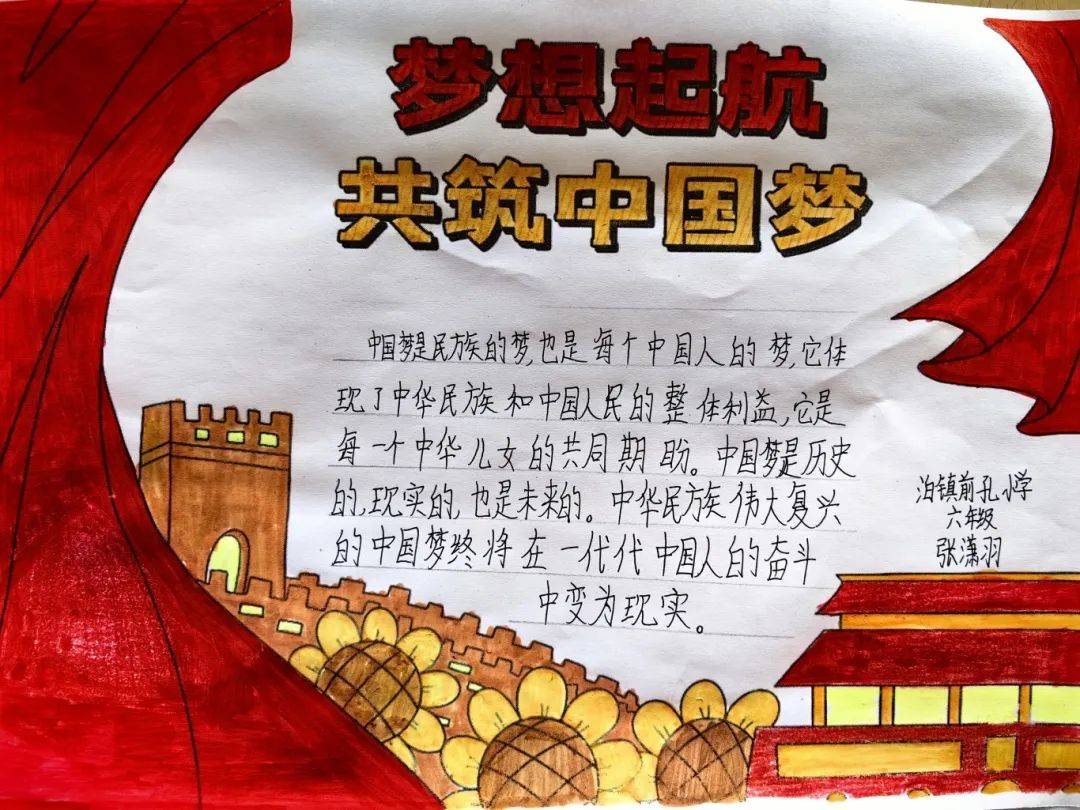 梦想起航
共筑中国梦
中国梦是民族的梦,也是每个中国人的梦,它体
现了中华民族和中国人民的整体利益,它是
每一个中华儿女的共同期盼。中国梦是历史
的,现实的,也是未来的。中华民族伟大复兴
的中国梦终将在一代代中国人的奋斗
中变为现实。
泊镇前孔小学
六年级
张潇羽